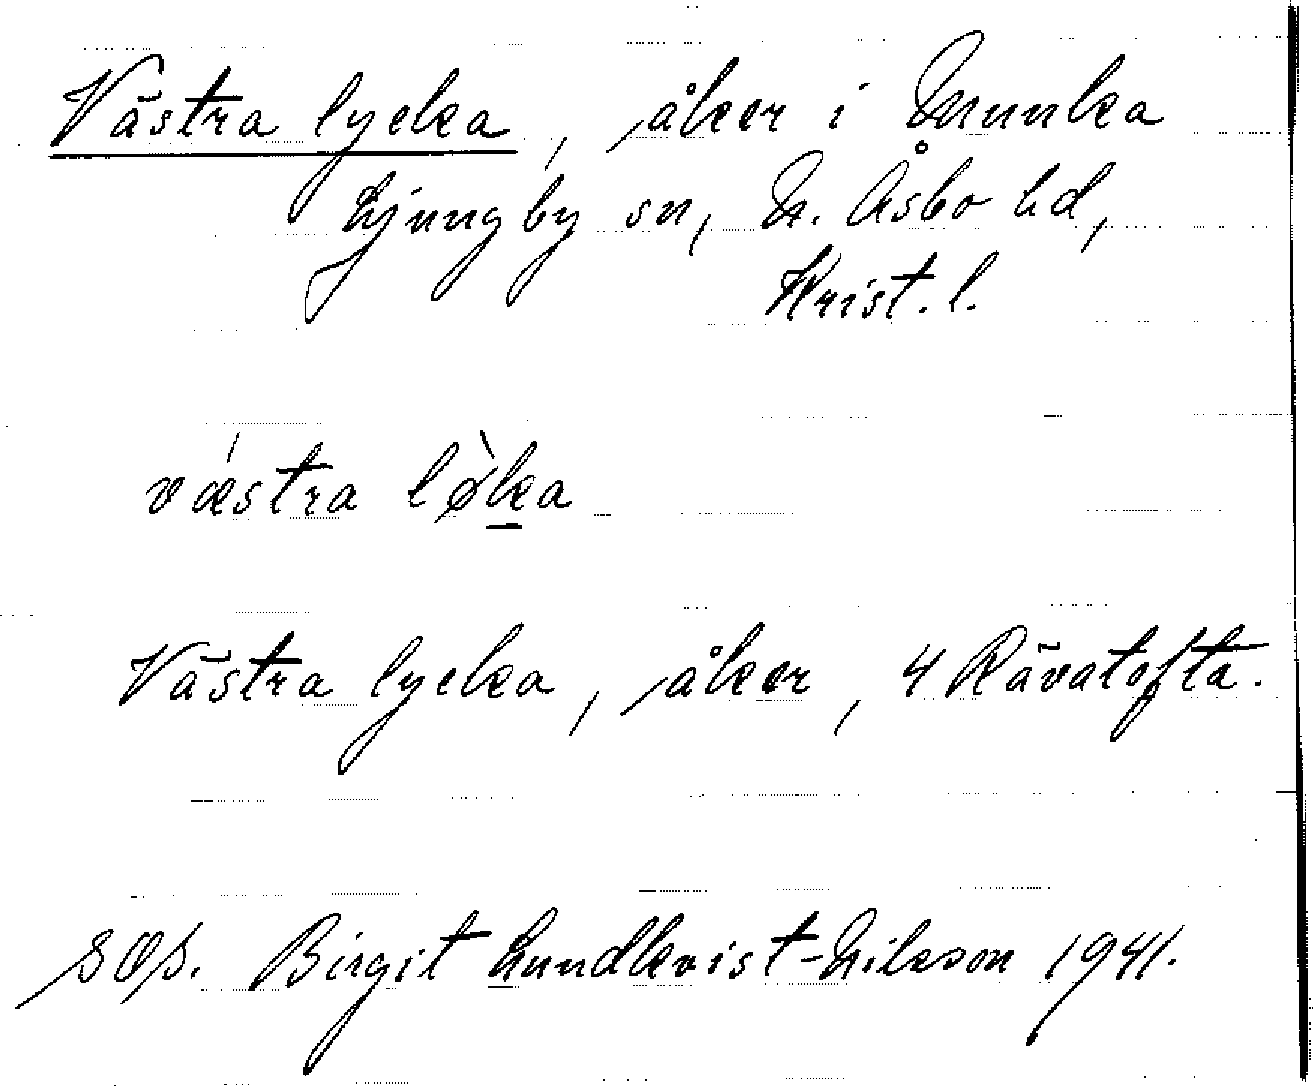 Västra lycka, åker i Munka
Ljungby sn, N. Åsbo hd,
Krist. l.
vǽstra lø̀ka
Västra lycka, åker, 4 Rävatofta.
SOS. Birgit Lundkvist-Nilsson 1941.